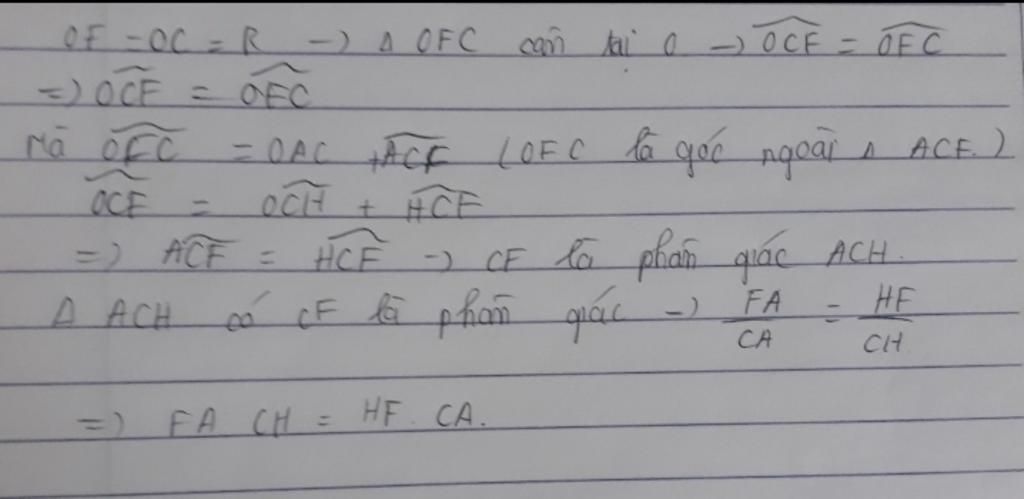 OF = OC = R → Δ OFC cân tại O → \widehat{OCF} = \widehat{OFC}
=> \widehat{OCF} = \widehat{OFC}
Mà \widehat{OFC} = OAC + \widehat{ACF} (OFC là góc ngoài Δ ACF.)
\widehat{OCF} = \widehat{OCH} + \widehat{HCF}
=> \widehat{ACF} = \widehat{HCF} → CF là phân giác ACH.
Δ ACH có CF là phân giác → \frac{FA}{CA} = \frac{HF}{CH}
=> FA CH = HF. CA.